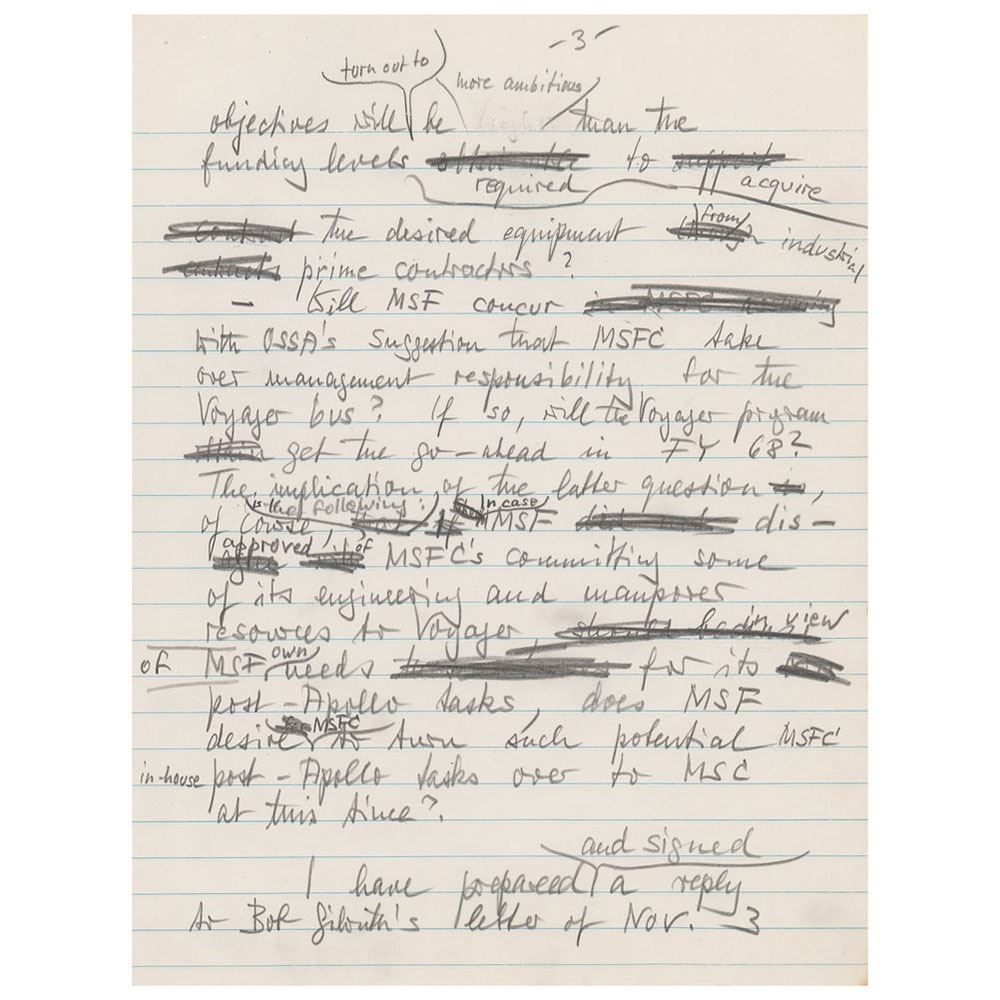 -3-
turn out to
more ambitious
objectives will be than the
funding levels to
required acquire
the desired equipment from industrial
prime contractors?
- Will MSF concur
with OSSA's suggestion that MSFC take
over management responsibility for the
Voyager bus? If so, will the Voyager program
get the go-ahead in FY 68?
The implication of the latter question,
is the following: In case
of course, MSF dis-
approved of MSFC's committing some
of its engineering and manpower
resources to Voyager, in view
of MSF own needs for its
post-Apollo tasks, does MSF
MSFC
desire to turn such potential MSFC
in-house post-Apollo tasks over to MSC
at this time?
and signed
I have prepared a reply
to Bob Gilruth's letter of Nov. 3